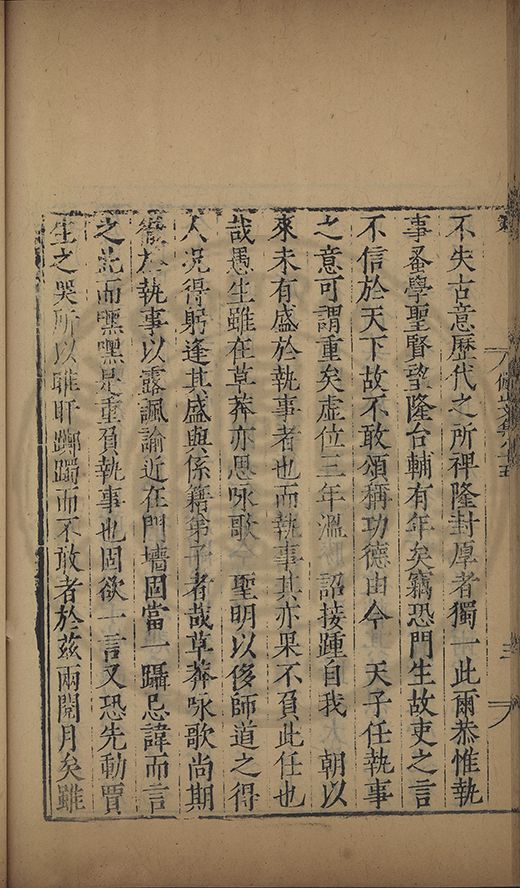 不失古意歷代之所裨隆封厚者獨一此爾恭惟執
事蚤學聖賢望隆台輔有年矣竊恐門生故吏之言
不信於天下故不敢頌稱功德由今天子任執事
之意可謂重矣虛位三年溫詔接踵自我朝以
來未有盛於執事者也而執事其亦果不負此任也
哉愚生雖在草莽亦思咏歌聖明以俟師道之得
人况得躬逢其盛與係籍第子者哉草莽咏歌尚期
徹於執事以露諷諭近在門墻固當一躡忌諱而言
之此而嘿嘿是重負執事也固欲一言又恐先動賈
生之哭所以睢盱躑躅而不敢者於兹兩閱月矣雖